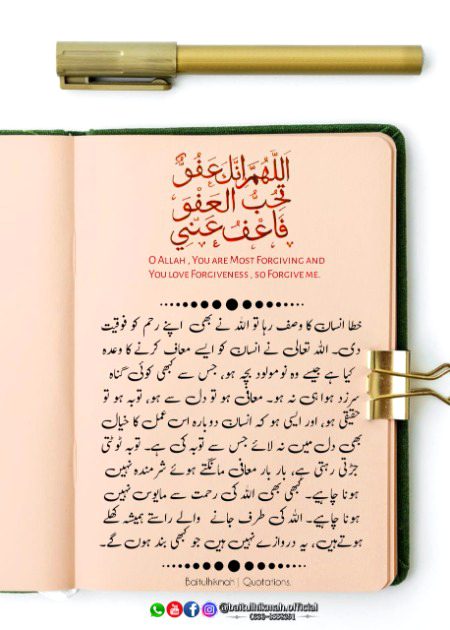 اَللّٰهُمَّ اِنَّكَ عَفُوٌّ
تُحِبُّ الْعَفْوَ
فَاعْفُ عَنِّي
O Allah , You are Most Forgiving and
You love Forgiveness , so Forgive me.
خطا انسان کا وصف رہا تو اللہ نے بھی اپنے رحم کو فوقیت
دی۔ اللہ تعالی نے انسان کو ایسے معاف کرنے کا وعدہ
کیا ہے جیسے وہ نومولود بچہ ہو، جس سے کبھی کوئی گناہ
سرزد ہوا ہی نہ ہو۔ معافی ہو تو دل سے ہو، توبہ ہو تو
حقیقی ہو، اور ایسی ہو کہ انسان دوبارہ اس عمل کا خیال
بھی دل میں نہ لائے جس سے توبہ کی ہے۔ توبہ ٹوٹتی
جڑتی رہتی ہے، بار بار معافی مانگتے ہوئے شرمندہ نہیں
ہونا چاہیے۔ کبھی بھی اللہ کی رحمت سے مایوس نہیں
ہونا چاہیے۔ اللہ کی طرف جانے والے راستے ہمیشہ کھلے
ہوتے ہیں، یہ دروازے نہیں ہیں جو کبھی بند ہوں گے۔
Baitulhikmah | Quotations.
@baitulhikmah.official